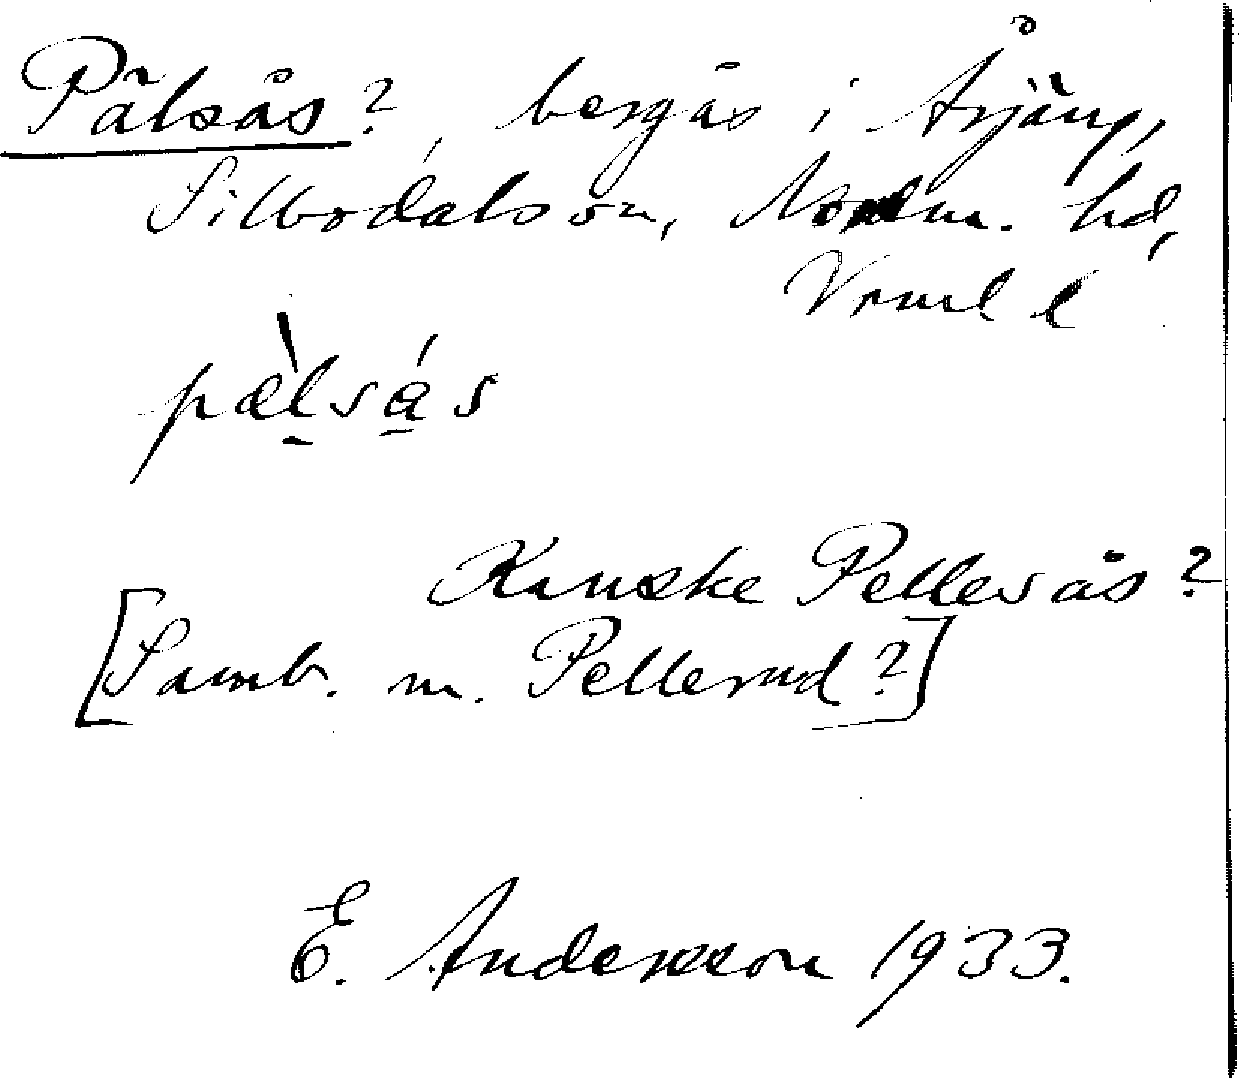 Pälsås?, bergås i Årjäng,
Silbodals sn, Nordm. hd,
Vrml l
pælsås
Kanske Pellesås?
[Samb. m. Pellerud?]
E. Andersson 1933.